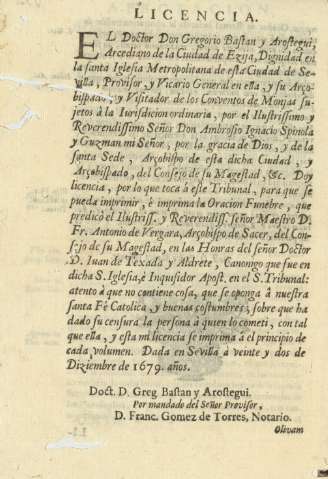 LICENCIA.
EL Doctor Don Gregorio Bastan y Arostegui,
Arcediano de la Ciudad de Ezija, Dignidad en
la santa Iglesia Metropolitana de esta Ciudad de Se-
villa, Provisor, y Vicario General en ella, y su Arço-
bispado, y Visitador de los Conventos de Monjas su-
jetos à la Iurisdicion ordinaria, por el Ilustrissimo y
Reverendissimo Señor Don Ambrosio Ignacio Spinola
y Guzman mi Señor, por la gracia de Dios, y de la
santa Sede, Arçobispo de esta dicha Ciudad, y
Arçobispado, del Consejo de su Magestad, &c. Doy
licencia, por lo que toca à este Tribunal, para que se
pueda imprimir, è imprima la Oracion Funebre, que
predicò el Ilustriss. y Reverendiss. señor Maestro D.
Fr. Antonio de Vergara, Arçobispo de Sacer, del Con-
sejo de su Magestad, en las Honras del señor Doctor
D. Iuan de Texada y Aldrete, Canongo que fue en
dicha S. Iglesia, è Inquisidor Apost. en el S. Tribunal:
atento à que no contiene cosa, que se oponga à nuestra
santa Fè Catolica, y buenas costumbres, sobre que ha
dado su censura la persona à quien lo cometi, con tal
que ella, y esta mi licencia se imprima à el principio de
cada volumen. Dada en Sevilla à veinte y dos de
Diziembre de 1679. años.
Doct. D. Greg Bastan y Arostegui.
Por mandado del Señor Provisor,
D. Franc. Gomez de Torres, Notario.
Olevam